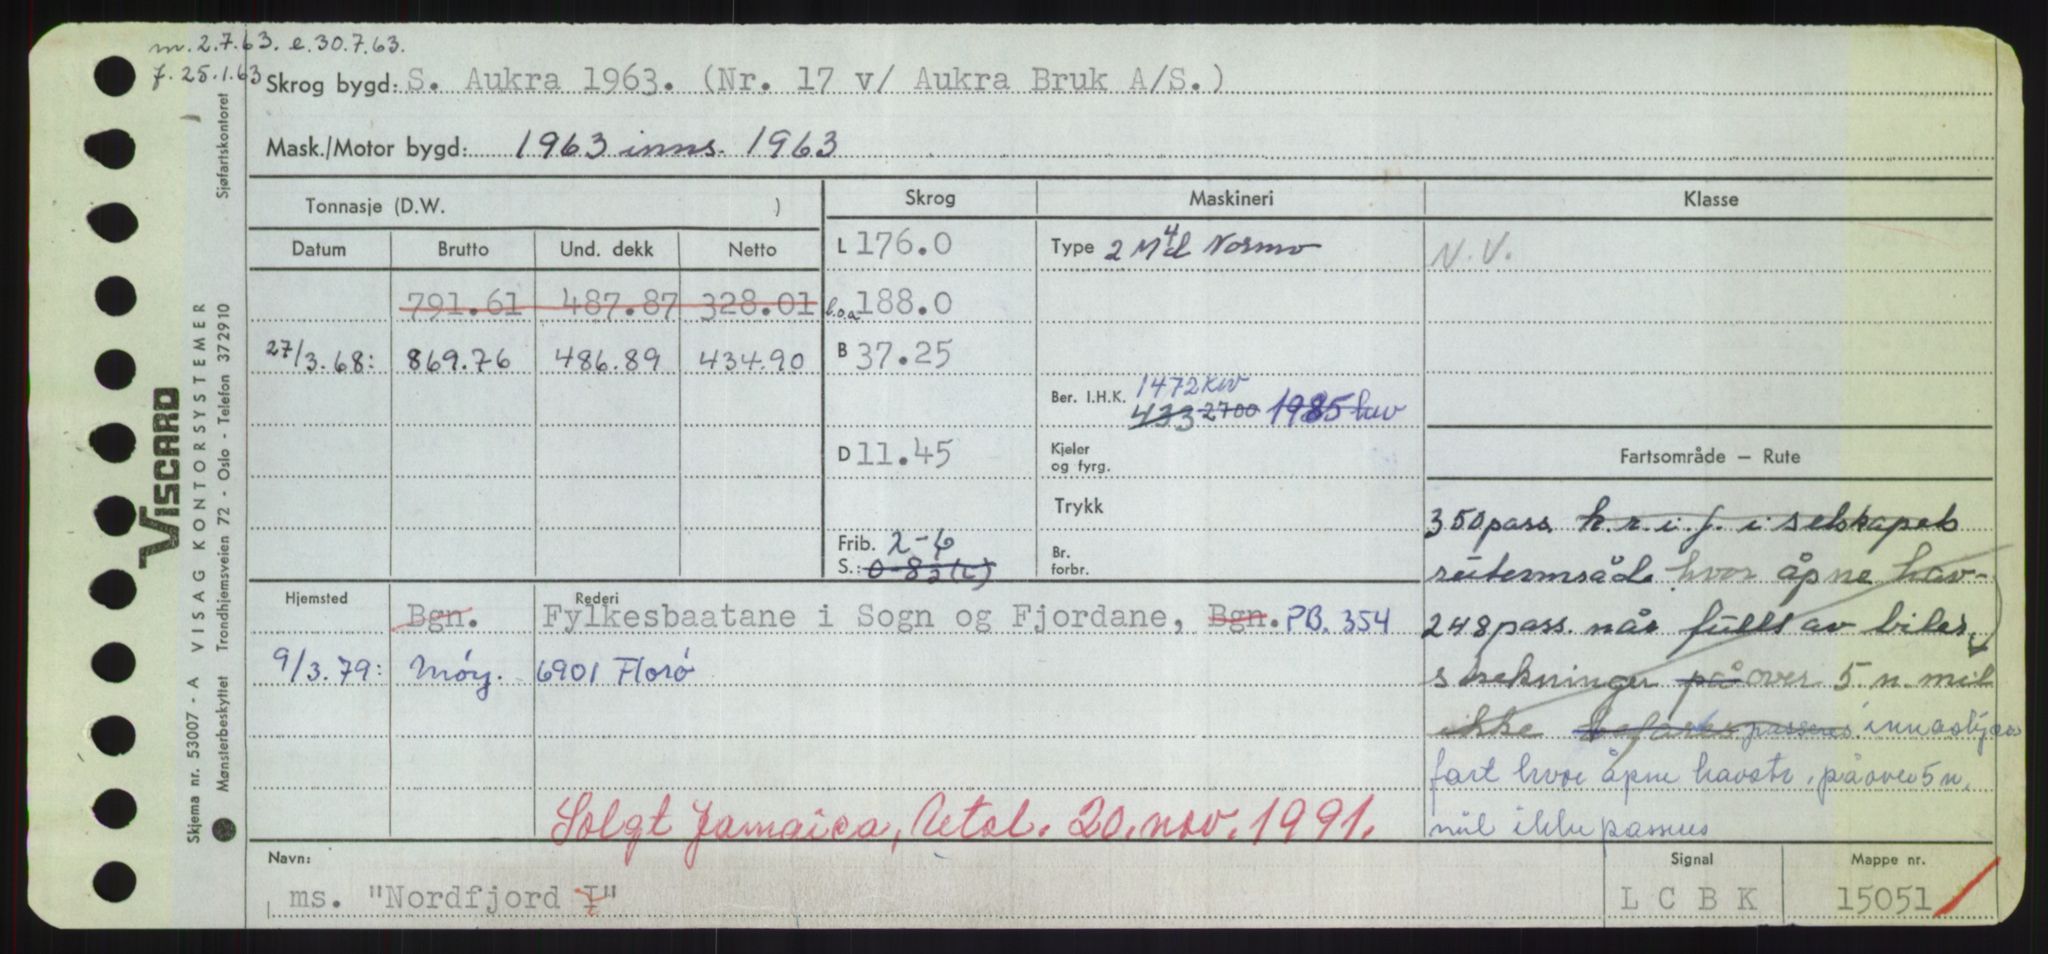 m. 2.7.63. e. 30.7.63.
f. 25.1.63
Skrog bygd: S. Aukra 1963. (Nr. 17 v/ Aukra Bruk A/S.)
Mask./Motor bygd: 1963 inns. 1963
Tonnasje (D.W. )
Skrog Maskineri Klasse
Datum Brutto Und. dekk Netto
L 176.0
Type 2 M 4 Normo
N.V.
791.61 487.87 328.01
l.o.a 188.0
27/3.68: 869.76 486.89 434.90
B 37.25
1472 kw
Ber. I.H.K. 433 2700 1985
D 11.45
Kjeler
og fyrg.
Fartsområde – Rute
Trykk
Frib. 2-6
S.: 0-8½(L)
Br.
forbr.
350 pass. k.r.i.f. i selskapets
ruteområde hvor åpne hav-
248 pass. når fullt av biler
strekninger på over 5 n. mil
ikke befares passeres innaskjærs
fart hvor åpne havstr. på over 5 n.
mil ikke passeres
Hjemsted Rederi
Bgn. Fylkesbaatane i Sogn og Fjordane, Bgn. PB. 354
9/3.79: Måøy. 6901 Florø
Solgt Jamaica, 20. nov. 1991.
Navn: Signal Mappe nr.
ms. "Nordfjord I" L C B K 15051
Sjøfartskontoret
VISCARD
Skjema nr. 53007 - A VISAG KONTORSYSTEMER
Mønsterbeskyttet Trondhjemsveien 72 - Oslo - Telefon 372910